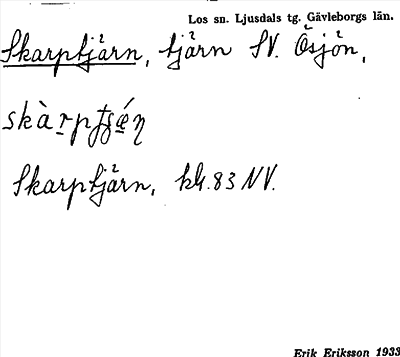 Los sn. Ljusdals tg. Gävleborgs län.
Skarptjärn, tjärn SV. Ösjön,
skàrptʃǽn
Skarptjärn, kbl. 83 NV.
Erik Eriksson 1933